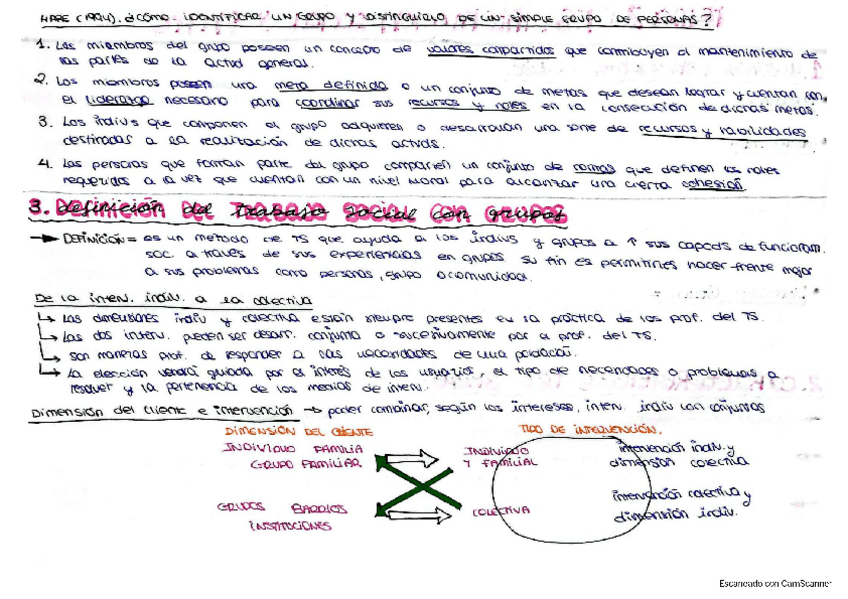 HARE (1994). ¿CÓMO IDENTIFICAR UN GRUPO Y DISTINGUIRLO DE UN SIMPLE GRUPO DE PERSONAS?
1. Los miembros del grupo poseen un concepto de valores compartidos que contribuyen al mantenimiento de
las partes de la activd general.
2. Los miembros poseen una meta definida o un conjunto de metas que desean lograr y cuentan con
el liderazgo necesario para coordinar sus recursos y roles en la consecución de dichas metas.
3. Los indivs que componen el grupo adquieren o desarrollan una serie de recursos y habilidades
destinadas a la realización de dichas activds.
4. Las personas que forman parte del grupo comparten un conjunto de normas que definen los roles
requeridos a la vez que cuentan con un nivel moral para alcanzar una cierta cohesión.
3. Definición del Trabajo Social con Grupos
→ DEFINICIÓN = es un método de TS que ayuda a los indivs y grupos a ↑ sus capacds de funcionam.
soc. a través de sus experiencias en grupos. Su fin es permitirles hacer frente mejor
a sus problemas como personas, grupo o comunidad.
De la interv. indiv. a la colectiva
↳ Las dimensiones indiv y colectiva están siempre presentes en la práctica de los prof. del TS.
↳ Las dos interv. pueden ser desarr. conjunta o sucesivamente por el prof. del TS.
↳ Son maneras prof. de responder a las necesidades de una población.
↳ La elección vendrá guiada por el interés de los usuarios, el tipo de necesidades o problemas a
resolver y la pertenencia de los medios de interv.
Dimensión del cliente e intervención → poder combinar, según los intereses, interv. indiv con conjuntas
DIMENSIÓN DEL CLIENTE
TIPO DE INTERVENCIÓN.
INDIVIDUO FAMILIA
GRUPO FAMILIAR
INDIVIDUO
Y FAMILIAL
intervención indiv. y
dimensión colectiva
GRUPOS BARRIOS
INSTITUCIONES
COLECTIVA
intervención colectiva y
dimensión indiv.
Escaneado con CamScanner